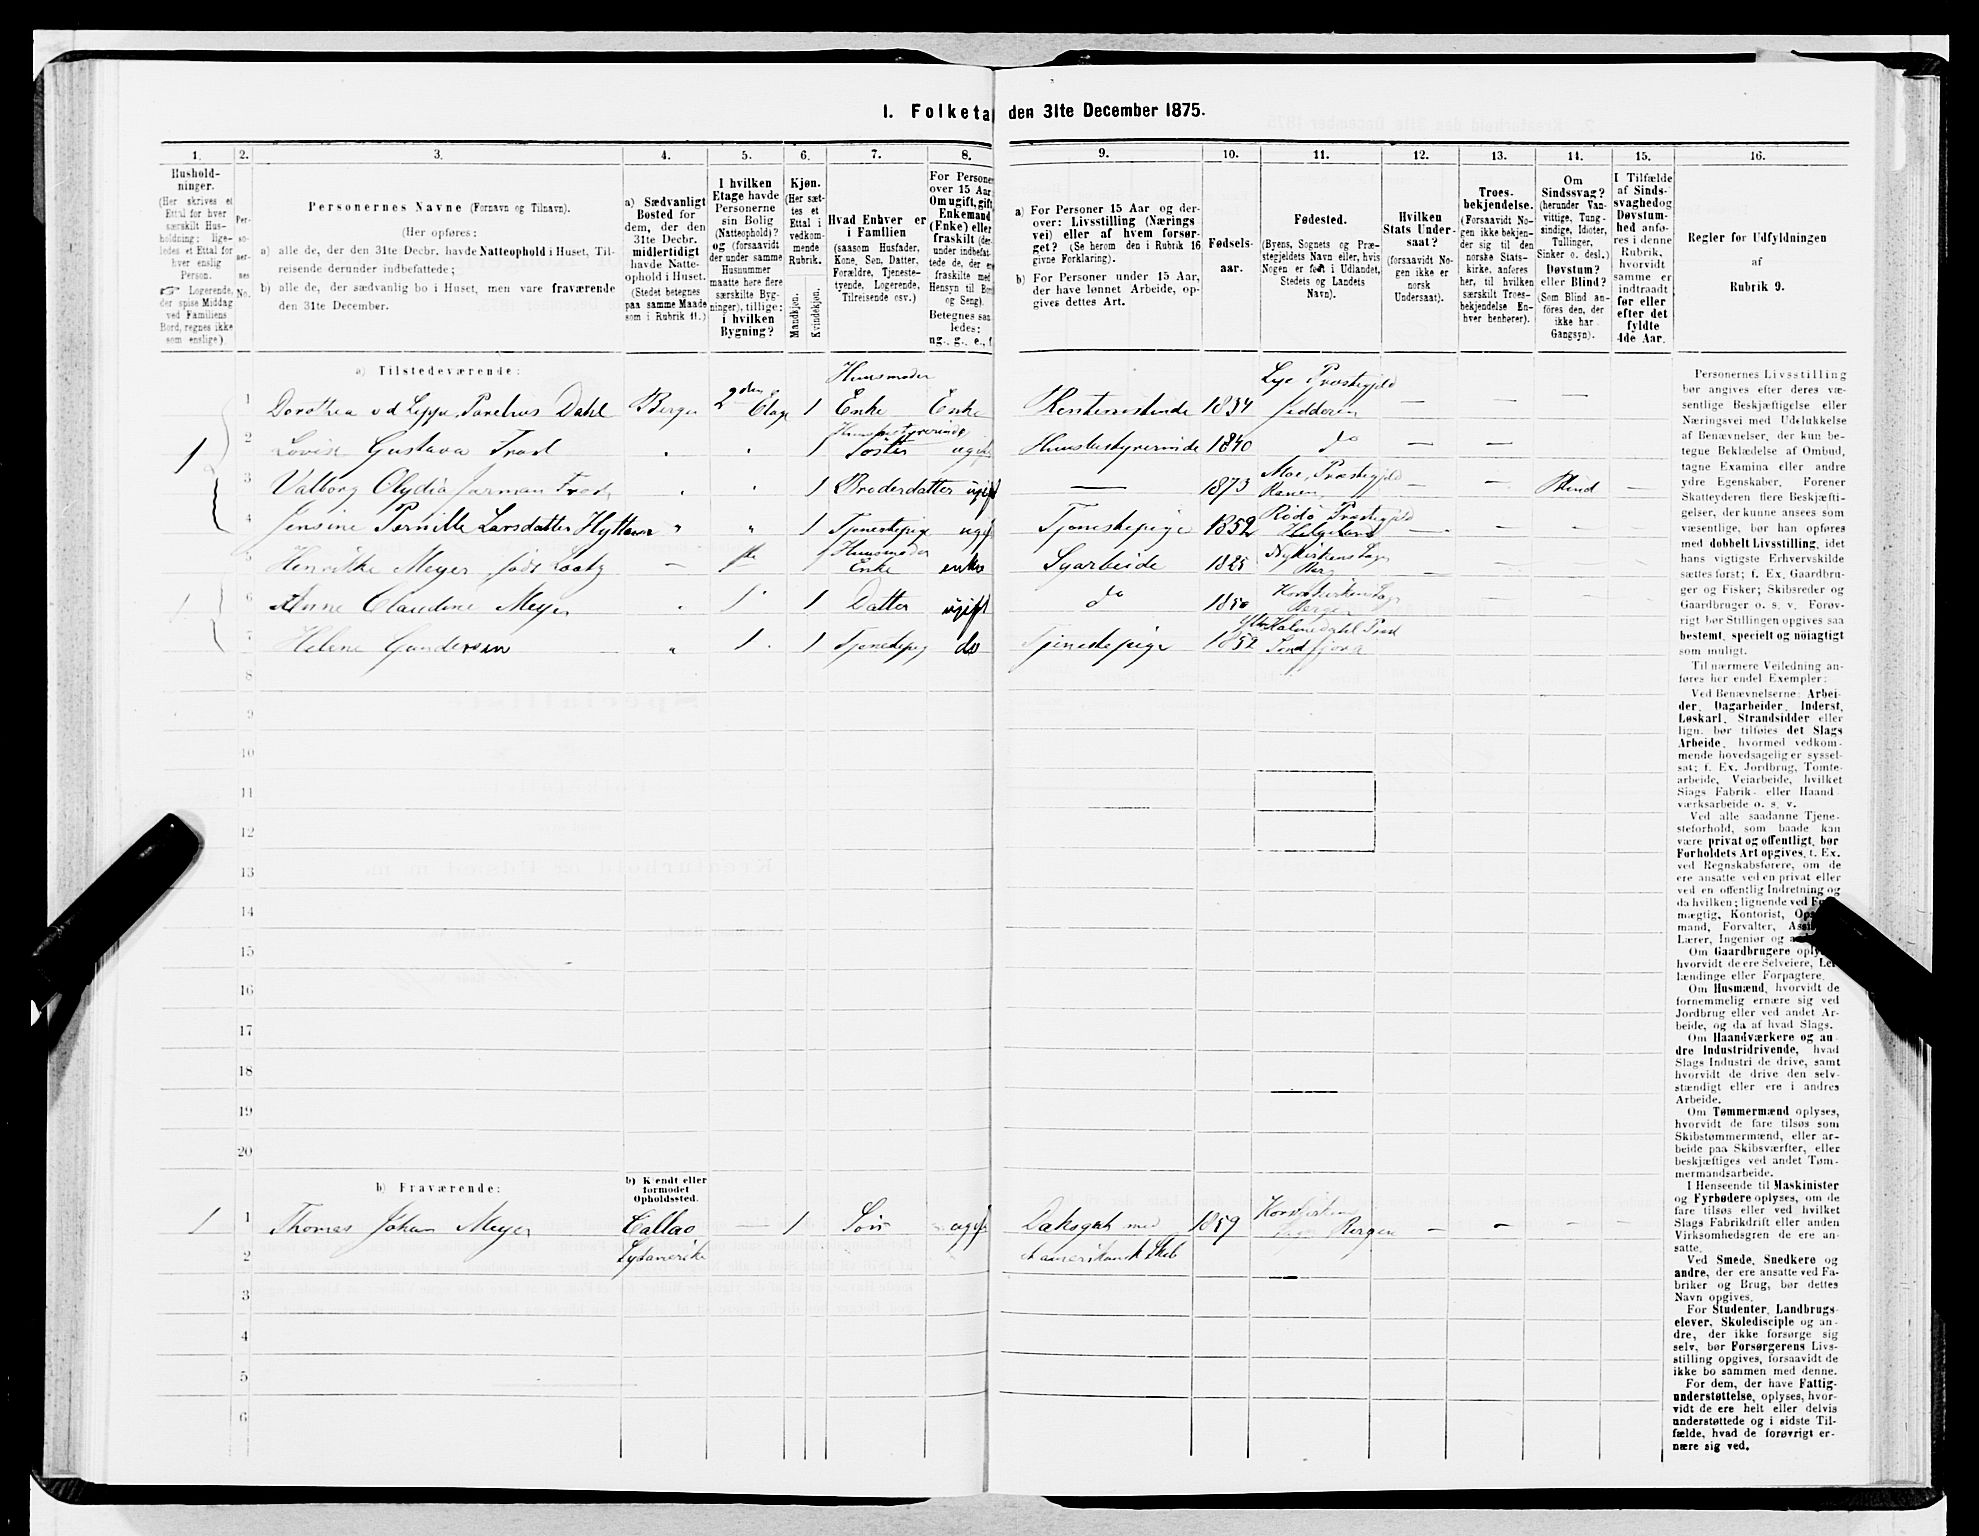 1. Folketa den 31te December 1875.
1. 2. 3. 4. 5. 6. 7. 8. 9. 10. 11. 12. 13. 14. 15. 16.
Hushold-
ninger.
(Her skrives et
Ettal for hver
særskilt Hus-
holdning; lige-
ledes et Ettal for
hver enslig
Person.
☞ Logerende,
der spise Middag
ved Familiens
Bord, regnes ikke
som enslige).
Per-
so-
ner-
nes
No.
Personernes Navne (Fornavn og Tilnavn).
(Her opføres:
a) alle de, der den 31te Decbr. havde Natteophold i Huset, Til-
reisende derunder indbefattede;
b) alle de, der sædvanlig bo i Huset, men vare fraværende
den 31te December.
a) Sædvanligt
Bosted for
dem, der den
31te Decbr.
midlertidigt
havde Natte-
ophold i Huset.
(Stedet betegnes
paa samme Maade
som i Rubrik 11.)
I hvilken
Etage havde
Personerne
sin Bolig
(Natteophold)?
og (forsaavidt
der under samme
Husnummer
maatte høre flere
særskilte Byg-
ninger), tillige:
i hvilken
Bygning?
Kjøn.
(Her sæt-
tes et
Ettal i
vedkom-
mende
Rubrik.
Mandkjøn.
Kvindekjøn.
Hvad Enhver er
i Familien
(saasom Husfader,
Kone, Søn, Datter,
Forældre, Tjeneste-
tyende, Logerende,
Tilreisende osv.)
For Persone
over 15 Aar
Om ugift, gift,
Enkemand
(Enke) eller
fraskilt (der
under indbefat-
tede de, der er
fraskilte med
Hensyn til Bo
og Seng).
Betegnes saa
ledes:
ug., g., e., f
a) For Personer 15 Aar og der-
over: Livsstilling (Nærings
vei) eller af hvem forsør-
get? (Se herom den i Rubrik 16
givne Forklaring).
b) For Personer under 15 Aar,
der have lønnet Arbeide, op-
gives dettes Art.
Fødsels-
aar.
Fødested.
(Byens, Sognets og Præ-
stegjeldets Navn eller, hvis
Nogen er født i Udlandet,
Stedets og Landets
Navn).
Hvilken
Stats Under-
saat?
(forsaavidt No-
gen ikke er
norsk
Undersaat).
Troes-
bekjendelse.
(Forsaavidt No-
gen ikke bekjen-
der sig til den
norske Stats-
kirke, anføres
her, til hvilken
særskilt Troes-
bekjendelse En-
hver henhører).
Om
Sindssvag?
(herunder Van-
vittige, Tung-
sindige, Idioter,
Tullinger,
Sinker o. desl.)
Døvstum?
eller Blind?
(Som Blind an-
føres den, der
ikke har
Gangsyn).
I Tilfælde
af Sinds-
svaghed og
Døvstum-
hed anfø-
res i denne
Rubrik,
hvorvidt
samme er
indtraadt
før eller
efter det
fyldte
4de Aar.
Regler for Udfyldningen
af
Rubrik 9.
a) Tilstedeværende:
1 1 Dorothea v d Lippe Parelius Dahl Bergen 2den Etage 1 Huusmoder Enke Enke Rentenistinde 1834 Lye Præstegjeld Jedderen — — —
2 Lovise Gustava Frost " " 1 Huusbestyrerinde Søster ugift Huusbestyrerinde 1840 do — —
3 Valborg Olydia Jarman Frost " " 1 Broderdatter ugift — 1873 Moe Præstegjeld Ranen — — Blind —
4 Jensine Pernille Larsdatter " " 1 Tjenestepige ugift Tjenestepige 1852 Rødø Præstegjeld Helgeland — — —
5 Henrikke Meyer født — 1 Huusmoder Enke enke Syarbeide 1825 Nykirkens Sogn — — —
1 6 Anne Claudine Meyer " 1 1 Datter ugift do 1850 Korskirkens Sogn Bergen — — —
7 Helene Gundersen " 1 1 Tjenestepig do Tjenestepige 1852 Ytre Holmedahl Præst Søndfjord
8
9
10
11
12
13
14
15
16
17
18
19
20
b) Fraværende:
b) Kjendt eller
formodet
Opholdssted.
1 1 Thomas Johan Meyer Callao — 1 Søn ugift Daksgut med 1859 Korskirkens Sogn Bergen — — — —
2 Sydamerika et amerikansk Skib
3
4
5
6
Personernes Livsstilling
bør angives efter deres væ-
sentlige Beskjæftigelse eller
Næringsvei med Udelukkelse
af Benævnelser, der kun be-
tegne Beklædelse af Ombud,
tagne Examina eller andre
ydre Egenskaber. Forener
Skatteyderen flere Beskjæfti-
gelser, der kunne ansees som
væsentlige, bør han opføres
med dobbelt Livsstilling, idet
hans vigtigste Erhvervskilde
sættes først; f. Ex. Gaardbru-
ger og Fisker; Skibsreder og
Gaardbruger o. s. v. Forøv-
rigt bør Stillingen opgives saa
bestemt, specielt og nöiagtigt
som muligt.
Til nærmere Veiledning an-
føres her endel Exempler:
Ved Benævnelserne: Arbei-
der, Dagarbeider, Inderst,
Løskarl, Strandsidder eller
lign. bør tilføies det Slags
Arbeide, hvormed vedkom-
mende hovedsagelig er syssel-
sat; f. Ex. Jordbrug, Tomte-
arbeide, Veiarbeide, hvilket
Slags Fabrik- eller Haand
værksarbeide o. s. v.
Ved alle saadanne Tjene-
steforhold, som baade kan
være privat og offentligt, bør
Forholdets Art opgives, t. Ex.
ved Regnskabsførere, om de
ere ansatte ved en privat eller
ved en offentlig Indretning og
da hvilken; lignende ved
mægtig, Kontorist,
mand, Forvalter,
Lærer, Ingeniør og
Om Gaardbrugere
hvorvidt de ere Selveiere,
lændinge eller Forpagtere.
Om Husmænd, hvorvidt de
fornemmelig ernære sig ved
Jordbrug eller ved andet Ar-
beide, og da af hvad Slags.
Om Haandværkere og an-
dre Industridrivende, hvad
Slags Industri de drive, samt
hvorvidt de drive den selv-
stændigt eller ere i andres
Arbeide.
Om Tømmermænd oplyses,
hvorvidt de fare tilsøs som
Skibstømmermænd, eller ar-
beide paa Skibsværfter, eller
beskjæftiges ved andet Tøm-
mermandsarbeide.
I Henseende til Maskinister
og Fyrbødere oplyses, om de
fare tilsøs eller ved hvilket
Slags Fabrikdrift eller anden
Virksomhedsgren de ere an-
satte.
Ved Smede, Snedkere og
andre, der ere ansatte ved Fa-
briker og Brug, bør dettes
Navn opgives.
For Studenter, Landbrugs-
elever, Skoledisciple og an-
dre, der ikke forsørge sig
selv, bør Forsørgerens Livs-
stilling opgives, forsaavidt de
ikke bo sammen med denne.
For dem, der have Fattig-
understøttelse, oplyses, hvor-
vidt de ere helt eller delvis
understøttede og i sidste Til-
fælde, hvad de forøvrigt er-
nære sig ved.